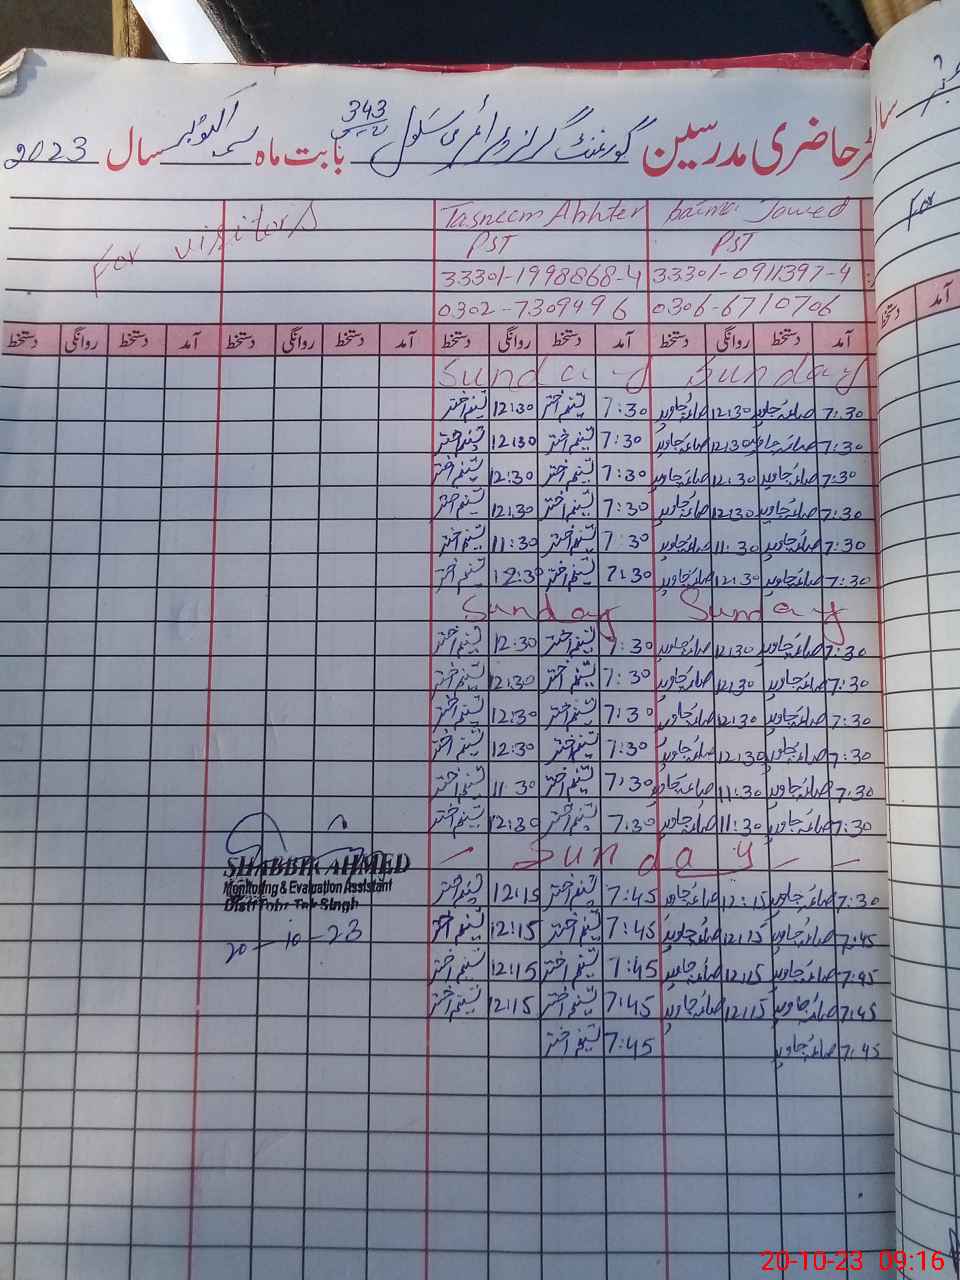 حاضری مدرسین گورنمنٹ گرلز پرائمری سکول 343 بابت ماہ اکتوبر سال 2023
For visitors Tasneem Akhter Saima Javed
PST PST
33301-1998868-4 33301-0911397-4
0302-7309496 0306-6710706
آمد دستخط روانگی دستخط آمد دستخط روانگی دستخط آمد دستخط روانگی دستخط آمد دستخط روانگی دستخط
Sunday Sunday
7:30 صائمہ جاوید 12:30 صائمہ جاوید 7:30 تسنیم اختر 12:30 تسنیم اختر
7:30 صائمہ جاوید 12:30 صائمہ جاوید 7:30 تسنیم اختر 12:30 تسنیم اختر
7:30 صائمہ جاوید 12:30 صائمہ جاوید 7:30 تسنیم اختر 12:30 تسنیم اختر
7:30 صائمہ جاوید 12:30 صائمہ جاوید 7:30 تسنیم اختر 12:30 تسنیم اختر
7:30 صائمہ جاوید 11:30 صائمہ جاوید 7:30 تسنیم اختر 11:30 تسنیم اختر
7:30 صائمہ جاوید 12:30 صائمہ جاوید 7:30 تسنیم اختر 12:30 تسنیم اختر
Sunday Sunday
7:30 صائمہ جاوید 12:30 صائمہ جاوید 7:30 تسنیم اختر 12:30 تسنیم اختر
7:30 صائمہ جاوید 12:30 صائمہ جاوید 7:30 تسنیم اختر 12:30 تسنیم اختر
7:30 صائمہ جاوید 12:30 صائمہ جاوید 7:30 تسنیم اختر 12:30 تسنیم اختر
7:30 صائمہ جاوید 12:30 صائمہ جاوید 7:30 تسنیم اختر 12:30 تسنیم اختر
7:30 صائمہ جاوید 11:30 صائمہ جاوید 7:30 تسنیم اختر 11:30 تسنیم اختر
7:30 صائمہ جاوید 11:30 صائمہ جاوید 7:30 تسنیم اختر 12:30 تسنیم اختر
Sunday
7:30 صائمہ جاوید 12:15 صائمہ جاوید 7:45 تسنیم اختر 12:15 تسنیم اختر
7:45 صائمہ جاوید 12:15 صائمہ جاوید 7:45 تسنیم اختر 12:15 تسنیم اختر
7:45 صائمہ جاوید 12:15 صائمہ جاوید 7:45 تسنیم اختر 12:15 تسنیم اختر
7:45 صائمہ جاوید 12:15 صائمہ جاوید 7:45 تسنیم اختر 12:15 تسنیم اختر
7:45 صائمہ جاوید 7:45 تسنیم اختر
SHABBIR AHMED
Monitoring & Evaluation Assistant
Distt Toba Tek Singh
20-10-23
For
آمد
دستخط
20-10-23 09:16